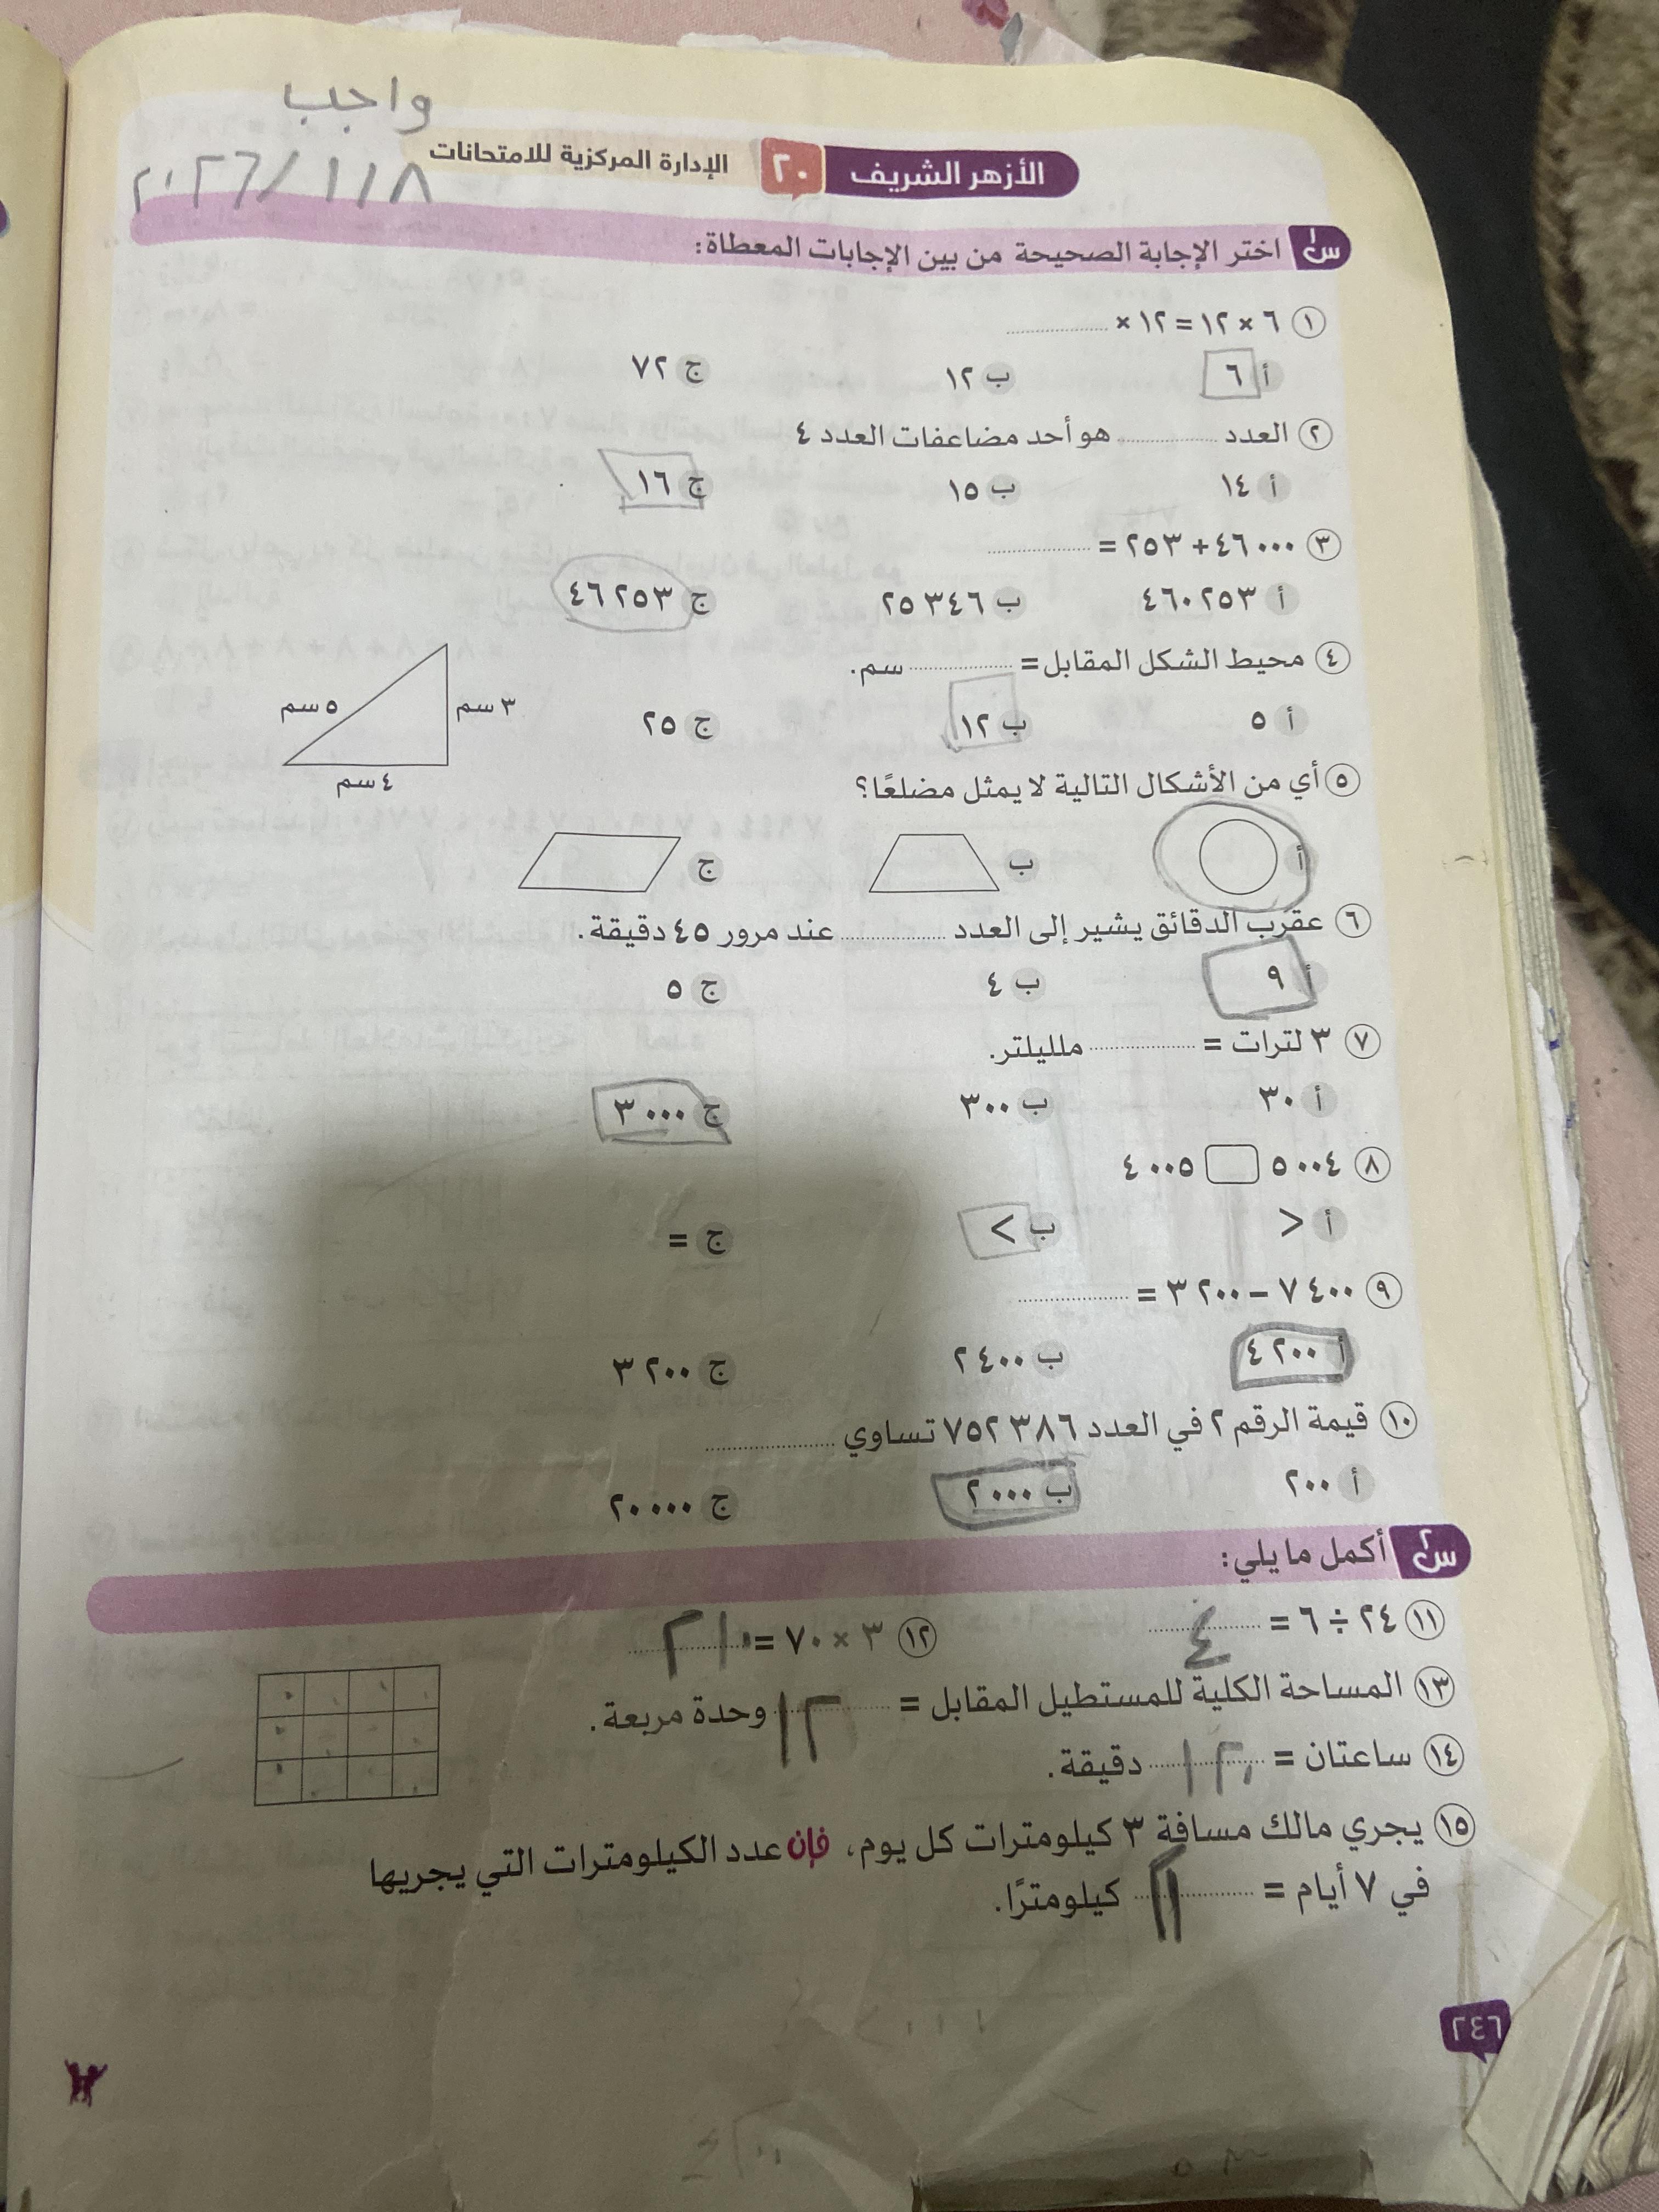 واجب
٢٠٢٦/١/٨
الأزهر الشريف ٢٠ الإدارة المركزية للامتحانات
س١ اختر الإجابة الصحيحة من بين الإجابات المعطاة:
١ ٦ × ١٢ = ١٢ × ..........
أ ٦ ب ١٢ ج ٧٢
٢ العدد .......... هو أحد مضاعفات العدد ٤
أ ١٤ ب ١٥ ج ١٦
٣ ٤٦٠٠٠ + ٢٥٣ = ..........
أ ٤٦٠٢٥٣ ب ٢٥٣٤٦ ج ٤٦٢٥٣
٤ محيط الشكل المقابل = .......... سم.
أ ٥ ب ١٢ ج ٢٥
٥ سم ٣ سم
٤ سم
٥ أي من الأشكال التالية لا يمثل مضلعًا؟
أ ب ج
٦ عقرب الدقائق يشير إلى العدد .......... عند مرور ٤٥ دقيقة.
أ ٩ ب ٤ ج ٥
٧ ٣ لترات = .......... ملليلتر.
أ ٣٠ ب ٣٠٠ ج ٣٠٠٠
٨ ٥٠٠٤ □ ٤٠٠٥
أ > ب < ج =
٩ ٧٤٠٠ − ٣٢٠٠ = ..........
أ ٤٢٠٠ ب ٢٤٠٠ ج ٣٢٠٠
١٠ قيمة الرقم ٢ في العدد ٧٥٢٣٨٦ تساوي ..........
أ ٢٠٠ ب ٢٠٠٠ ج ٢٠٠٠٠
س٢ أكمل ما يلي:
١١ ٢٤ ÷ ٦ = ٤ ١٢ ٣ × ٧٠ = ٢١٠
١٣ المساحة الكلية للمستطيل المقابل = ١٢ وحدة مربعة.
١٤ ساعتان = ١٢٠ دقيقة.
١٥ يجري مالك مسافة ٣ كيلومترات كل يوم، فإن عدد الكيلومترات التي يجريها
في ٧ أيام = ٢١ كيلومترًا.
٢٤٦